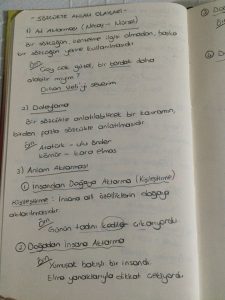 - SÖZCÜKTE ANLAM OLAYLARI -
1) Ad Aktarması (Mecaz-ı Mürsel)
Bir sözcüğün, benzetme ilgisi olmadan, başka
bir sözcüğün yerine kullanılmasıdır.
Örn
Çay çok güzel, bir bardak daha
alabilir miyim?
Orhan Veli'yi severim
2) Dolaylama
Bir sözcükle anlatılabilecek bir kavramın,
birden fazla sözcükle anlatılmasıdır.
Örn
Atatürk - ulu önder
kömür - kara elmas
3) Anlam Aktarması
1 İnsandan Doğaya Aktarma (Kişileştirme)
Kişileştirme : İnsana ait özelliklerin doğaya
aktarılmasıdır.
Örn
Günün tadını kediler çıkarıyordu
2 Doğadan İnsana Aktarma
Örn
Yumuşak bakışlı bir insandı.
Elma yanaklarıyla dikkat çekiyordu